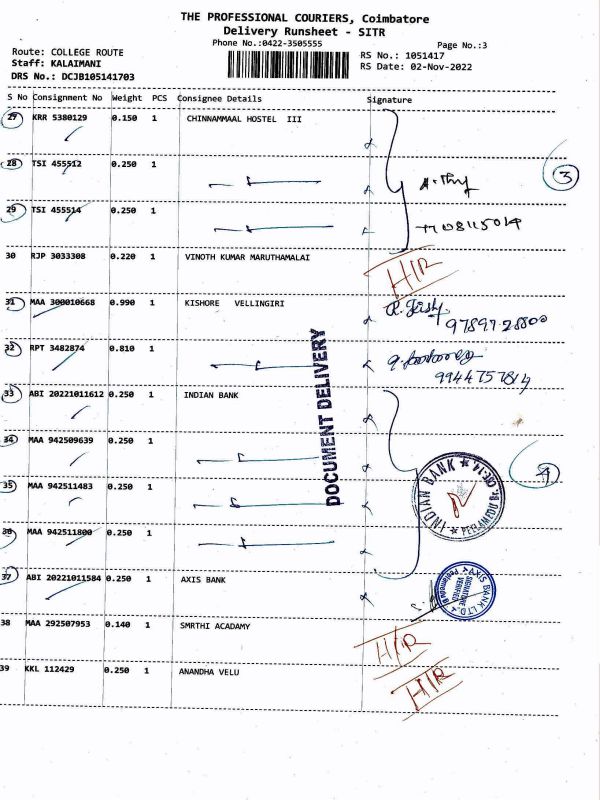 THE PROFESSIONAL COURIERS, Coimbatore
Delivery Runsheet - SITR
Phone No.:0422-3505555
Page No.:3
Route: COLLEGE ROUTE
RS No.: 1051417
Staff: KALAIMANI
RS Date: 02-Nov-2022
DRS No.: DCJB105141703
S No Consignment No Weight PCS Consignee Details Signature
27 KRR 5380129 0.150 1 CHINNAMMAAL HOSTEL III
28 TSI 455512 0.250 1
3
29 TSI 455514 0.250 1
30 RJP 3033308 0.220 1 VINOTH KUMAR MARUTHAMALAI
H/R
31 MAA 300010668 0.990 1 KISHORE VELLINGIRI
97897 28800
32 RPT 3482874 0.810 1
9944757814
DOCUMENT DELIVERY
33 ABI 20221011612 0.250 1 INDIAN BANK
34 MAA 942509639 0.250 1
4
35 MAA 942511483 0.250 1
INDIAN BANK
36 MAA 942511800 0.250 1
37 ABI 20221011584 0.250 1 AXIS BANK
AXIS BANK LTD.
SIGNATURE
VERIFIED
38 MAA 292507953 0.140 1 SMRTHI ACADAMY
H/R
39 KKL 112429 0.250 1 ANANDHA VELU
H/R